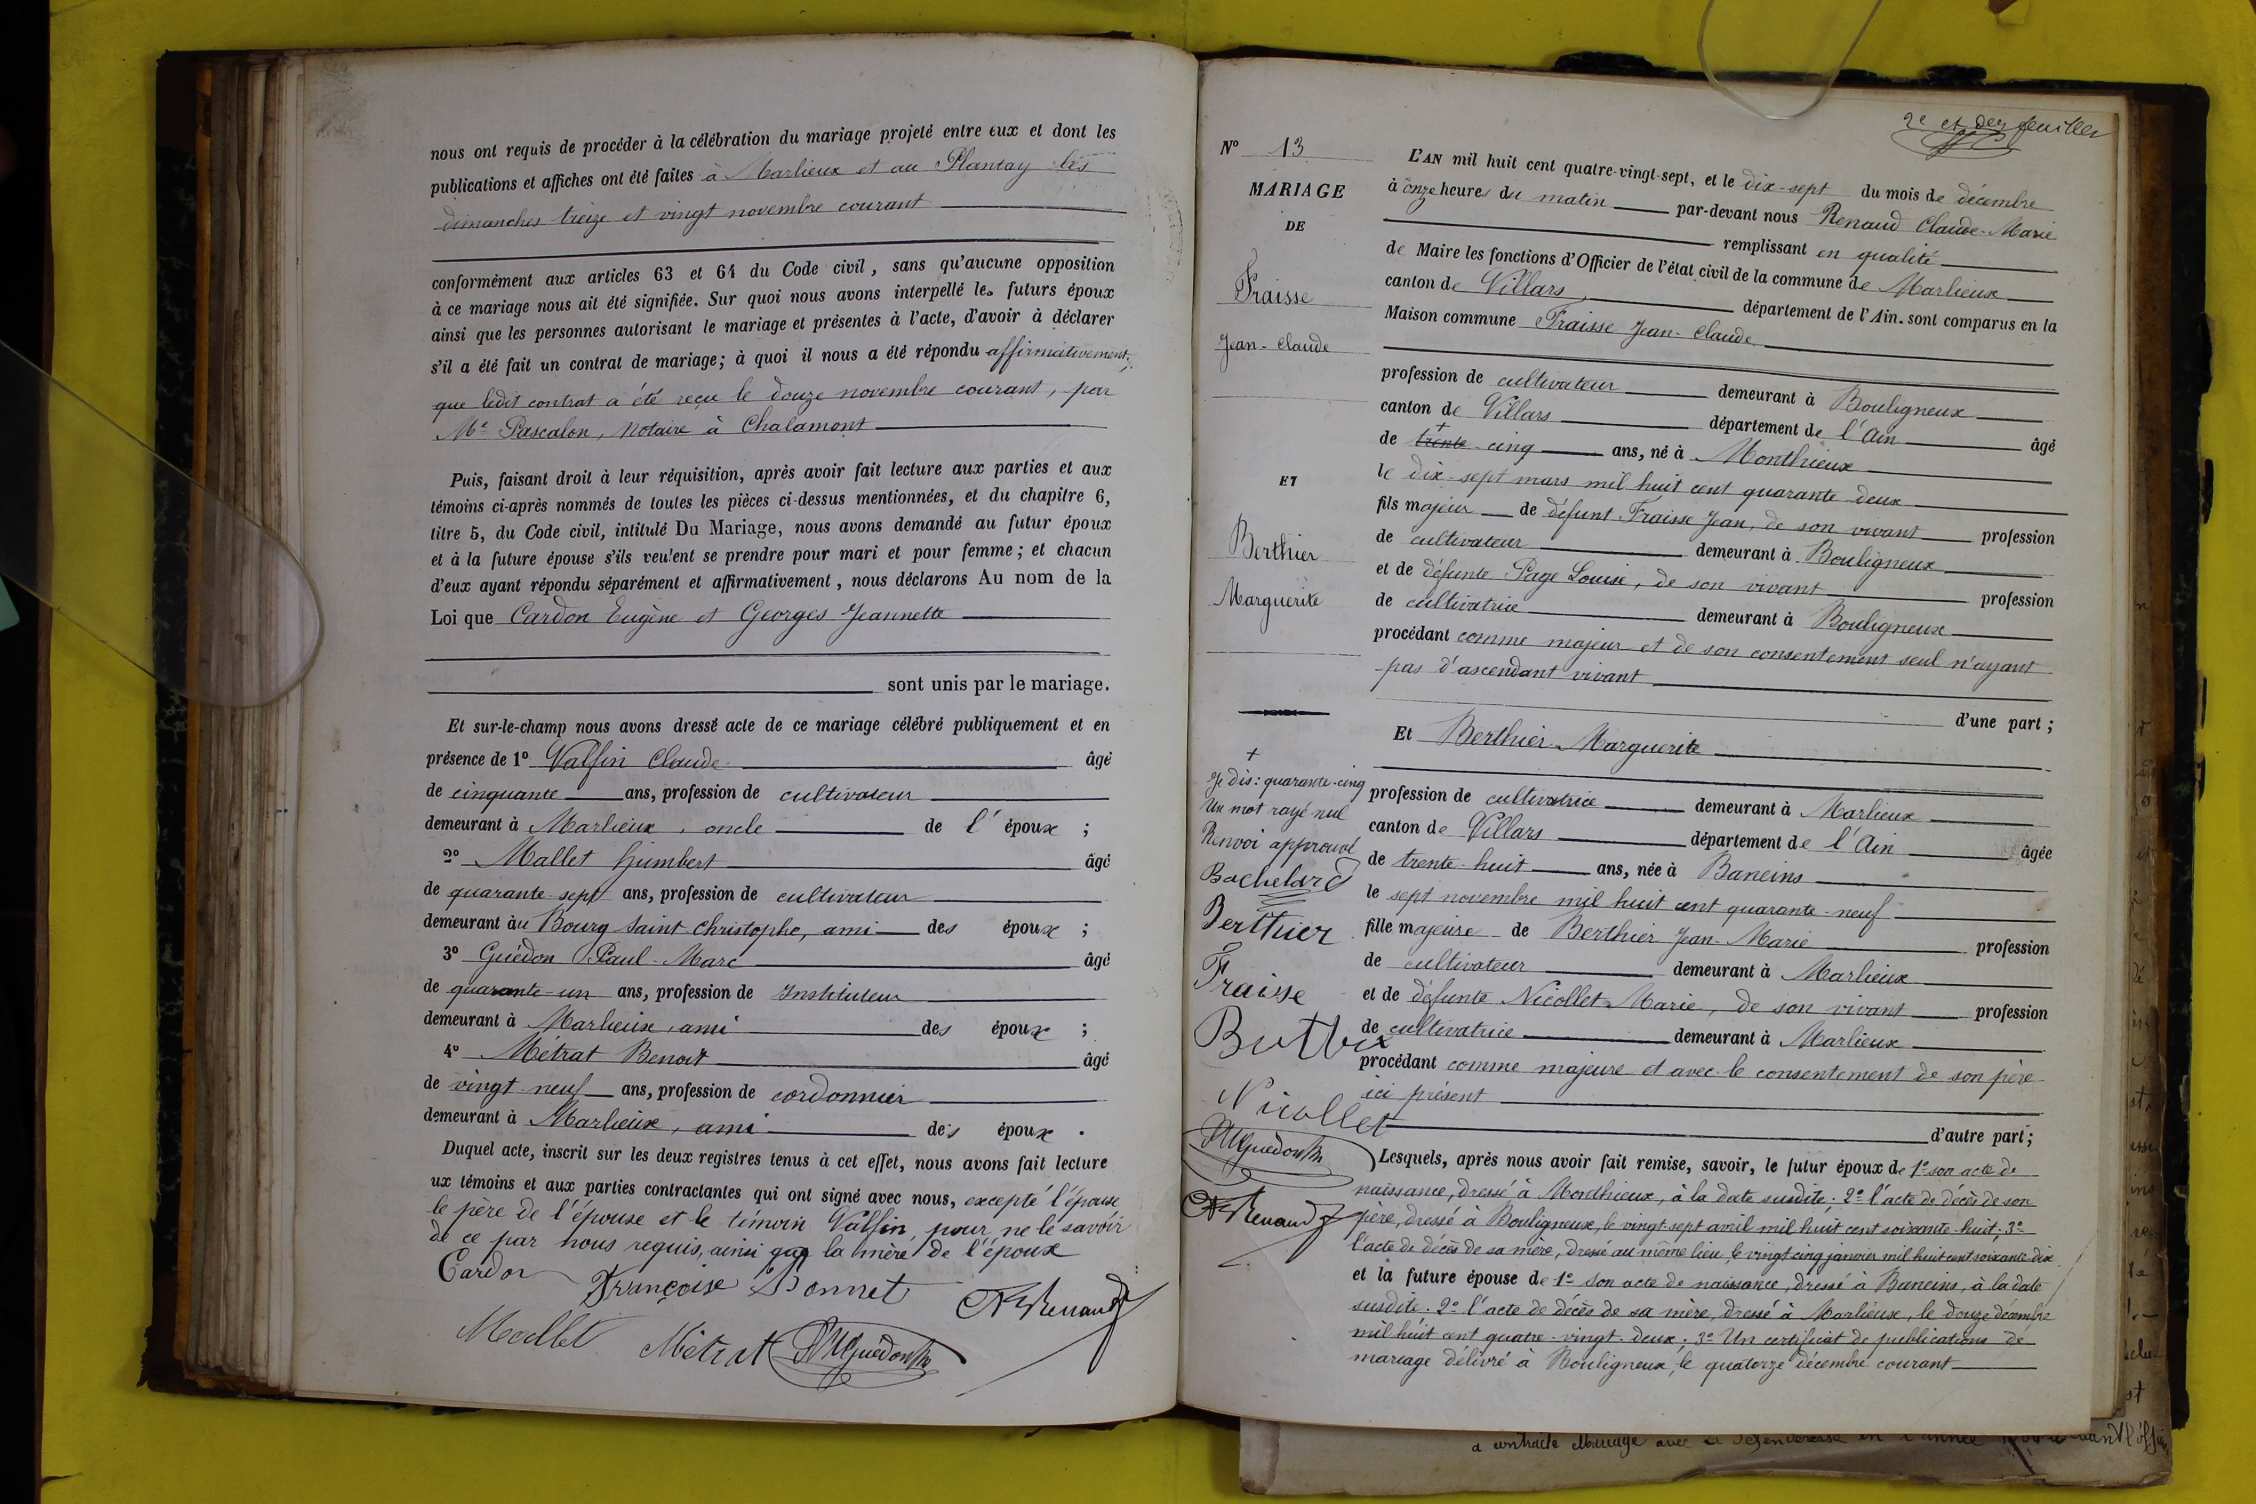 nous ont requis de procéder à la célébration du mariage projeté entre eux et dont les
publications et affiches ont été faites à Marlieux et au Plantay les
dimanches treize et vingt novembre courant
conformément aux articles 63 et 64 du Code civil, sans qu'aucune opposition
à ce mariage nous ait été signifiée. Sur quoi nous avons interpellé les futurs époux
ainsi que les personnes autorisant le mariage et présentes à l'acte, d'avoir à déclarer
s'il a été fait un contrat de mariage; à quoi il nous a été répondu affirmativement;
que ledit contrat a été reçu le douze novembre courant, par
Me Pascalon, Notaire à Chalamont
Puis, faisant droit à leur réquisition, après avoir fait lecture aux parties et aux
témoins ci-après nommés de toutes les pièces ci-dessus mentionnées, et du chapitre 6,
titre 5, du Code civil, intitulé Du Mariage, nous avons demandé au futur époux
et à la future épouse s'ils veulent se prendre pour mari et pour femme; et chacun
d'eux ayant répondu séparément et affirmativement, nous déclarons Au nom de la
Loi que Cardon Eugène et Georges Jeannette
sont unis par le mariage.
Et sur-le-champ nous avons dressé acte de ce mariage célébré publiquement et en
présence de 1° Valfin Claude âgé
de cinquante ans, profession de cultivateur
demeurant à Marlieux, oncle de l'époux ;
2° Mallet Humbert âgé
de quarante-sept ans, profession de cultivateur
demeurant au Bourg Saint-Christophe, ami des époux ;
3° Guédon Paul-Marc âgé
de quarante-un ans, profession de Instituteur
demeurant à Marlieux, ami des époux ;
4° Métrat Benoit âgé
de vingt-neuf ans, profession de cordonnier
demeurant à Marlieux, ami des époux .
Duquel acte, inscrit sur les deux registres tenus à cet effet, nous avons fait lecture
ux témoins et aux parties contractantes qui ont signé avec nous, excepté l'épouse
le père de l'épouse et le témoin Valfin, pour ne le savoir
de ce par nous requis, ainsi que la mère de l'époux
Cardon Françoise Bonnet
Renaud
Mallet Métrat PMGuédon
2e et der feuillet
N° 13
MARIAGE
DE
Fraisse
Jean-Claude
ET
Berthier
Marguerite
+
Je dis: quarante-cinq
Un mot rayé nul
Renvoi approuvé
Bachelard
Berthier
Fraisse
Nicollet
PMGuédon
Renaud
L'AN mil huit cent quatre-vingt-sept, et le dix-sept du mois de décembre
à onze heures du matin par-devant nous Renaud Claude-Marie
remplissant en qualité
de Maire les fonctions d'Officier de l'état civil de la commune de Marlieux
canton de Villars, département de l'Ain. sont comparus en la
Maison commune Fraisse Jean-Claude
profession de cultivateur demeurant à Bouligneux
canton de Villars département de l'Ain âgé
de trente-cinq ans, né à Monthieux
le dix-sept mars mil huit cent quarante-deux
fils majeur de défunt Fraisse Jean, de son vivant profession
de cultivateur demeurant à Bouligneux
et de défunte Page Louise, de son vivant profession
de cultivatrice demeurant à Bouligneux
procédant comme majeur et de son consentement seul n'ayant
pas d'ascendant vivant
d'une part ;
Et Berthier Marguerite
profession de cultivatrice demeurant à Marlieux
canton de Villars département de l'Ain âgée
de trente-huit ans, née à Baneins
le sept novembre mil huit cent quarante-neuf
fille majeure de Berthier Jean-Marie profession
de cultivateur demeurant à Marlieux
et de défunte Nicollet Marie, de son vivant profession
de cultivatrice demeurant à Marlieux
procédant comme majeure et avec le consentement de son père
ici présent
d'autre part ;
Lesquels, après nous avoir fait remise, savoir, le futur époux de 1° son acte de
naissance, dressé à Monthieux, à la date susdite; 2° l'acte de décès de son
père, dressé à Bouligneux, le vingt-sept avril mil huit cent soixante-huit; 3°
l'acte de décès de sa mère, dressé au même lieu, le vingt-cinq janvier mil huit cent soixante-dix
et la future épouse de 1° son acte de naissance, dressé à Baneins, à la date
susdite. 2° l'acte de décès de sa mère, dressé à Marlieux, le douze décembre
mil huit cent quatre-vingt-deux; 3° Un certificat de publications de
mariage délivré à Bouligneux, le quatorze décembre courant
a contracté Mariage avec la défenderesse en l'année